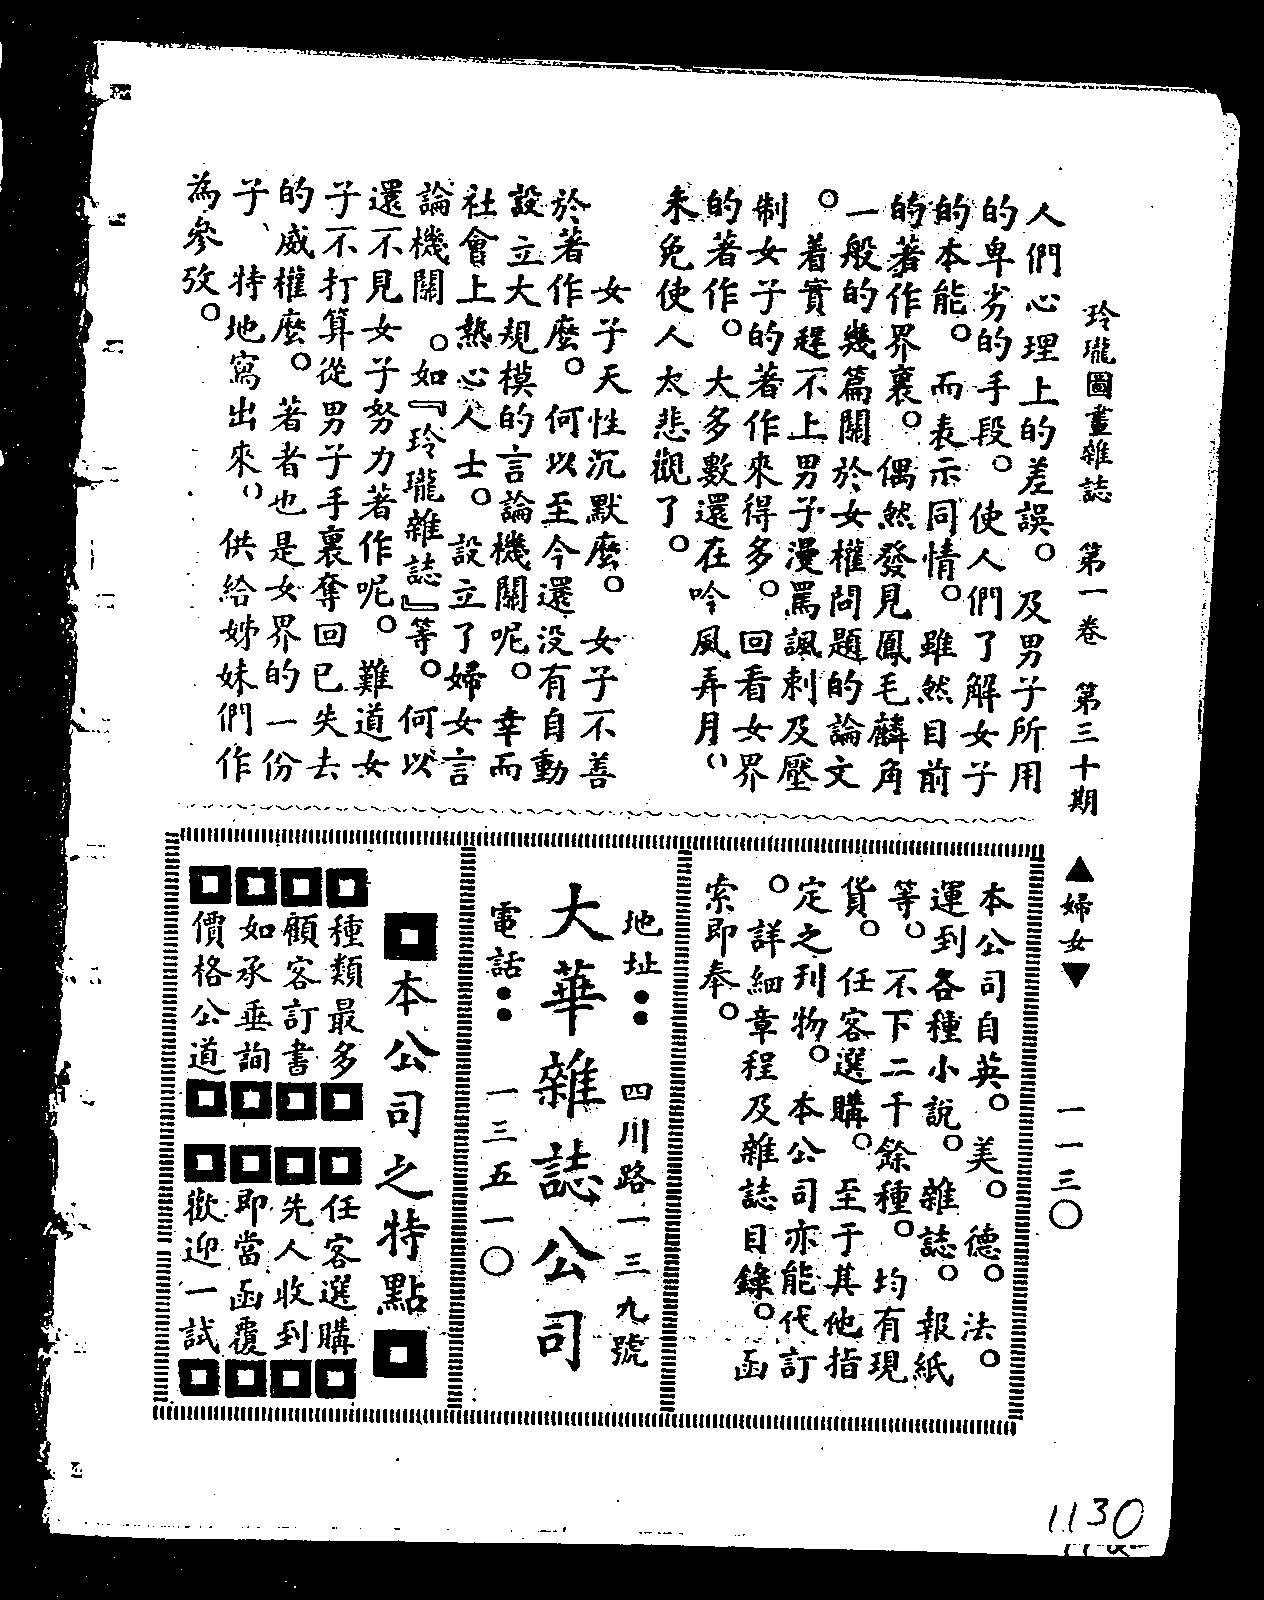 玲瓏圖畫雜誌　第一卷　第三十期　▲婦女▼　一一三〇
人們心理上的差誤。及男子所用
的卑劣的手段。使人們了解女子
的本能。而表示同情。雖然目前
的著作界裏。偶然發見鳳毛麟角
一般的幾篇關於女權問題的論文
。着實趕不上男子漫罵諷刺及壓
制女子的著作來得多。回看女界
的著作。大多數還在吟風弄月。
未免使人太悲觀了。
女子天性沉默麼。女子不善
於著作麼。何以至今還没有自動
設立大規模的言論機關呢。幸而
社會上熱心人士。設立了婦女言
論機關。如『玲瓏雜誌』等。何以
還不見女子努力著作呢。難道女
子不打算從男子手裏奪回已失去
的威權麼。著者也是女界的一份
子、特地寫出來。供給姊妹們作
為參攷。
本公司自英。美。德。法。
運到各種小說。雜誌。報紙
等。不下二千餘種。均有現
貨。任客選購。至于其他指
定之刊物。本公司亦能代訂
。詳細章程及雜誌目錄。函
索即奉。
地址：四川路一三九號
大華雜誌公司
電話：一三五一〇
本公司之特點
種類最多　任客選購
顧客訂書　先人收到
如承垂詢　即當函覆
價格公道　歡迎一試
1130